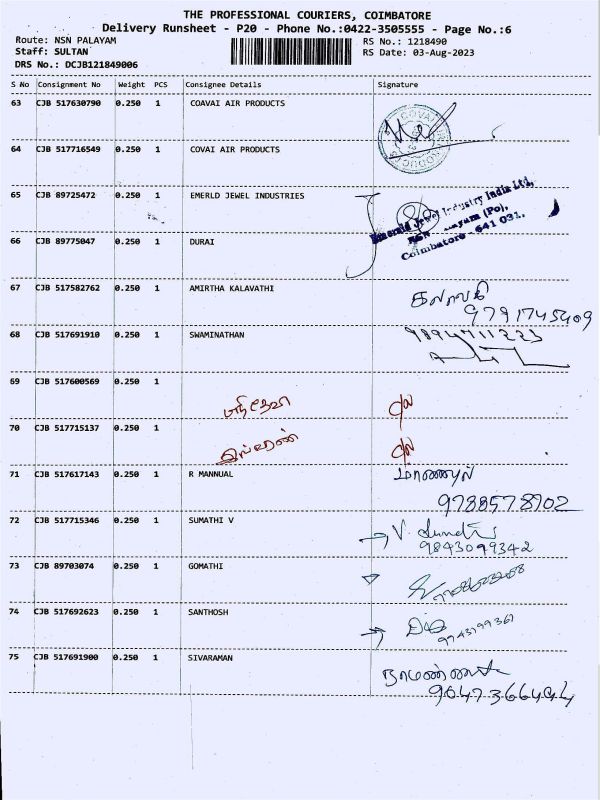 THE PROFESSIONAL COURIERS, COIMBATORE
Delivery Runsheet - P20 - Phone No.:0422-3505555 - Page No.:6
Route: NSN PALAYAM RS No.: 1218490
Staff: SULTAN RS Date: 03-Aug-2023
DRS No.: DCJB121849006
S No Consignment No Weight PCS Consignee Details Signature
63 CJB 517630790 0.250 1 COAVAI AIR PRODUCTS
64 CJB 517716549 0.250 1 COVAI AIR PRODUCTS
65 CJB 89725472 0.250 1 EMERLD JEWEL INDUSTRIES
Emerald Jewel Industry India Ltd,
(Po),
Coimbatore - 641 031.
66 CJB 89775047 0.250 1 DURAI
67 CJB 517582762 0.250 1 AMIRTHA KALAVATHI
கலாவதி
9791745409
68 CJB 517691910 0.250 1 SWAMINATHAN
9894711223
69 CJB 517600569 0.250 1
70 CJB 517715137 0.250 1
71 CJB 517617143 0.250 1 R MANNUAL
9788578902
72 CJB 517715346 0.250 1 SUMATHI V
9843099342
73 CJB 89703074 0.250 1 GOMATHI
74 CJB 517692623 0.250 1 SANTHOSH
9743799361
75 CJB 517691900 0.250 1 SIVARAMAN
9047366494